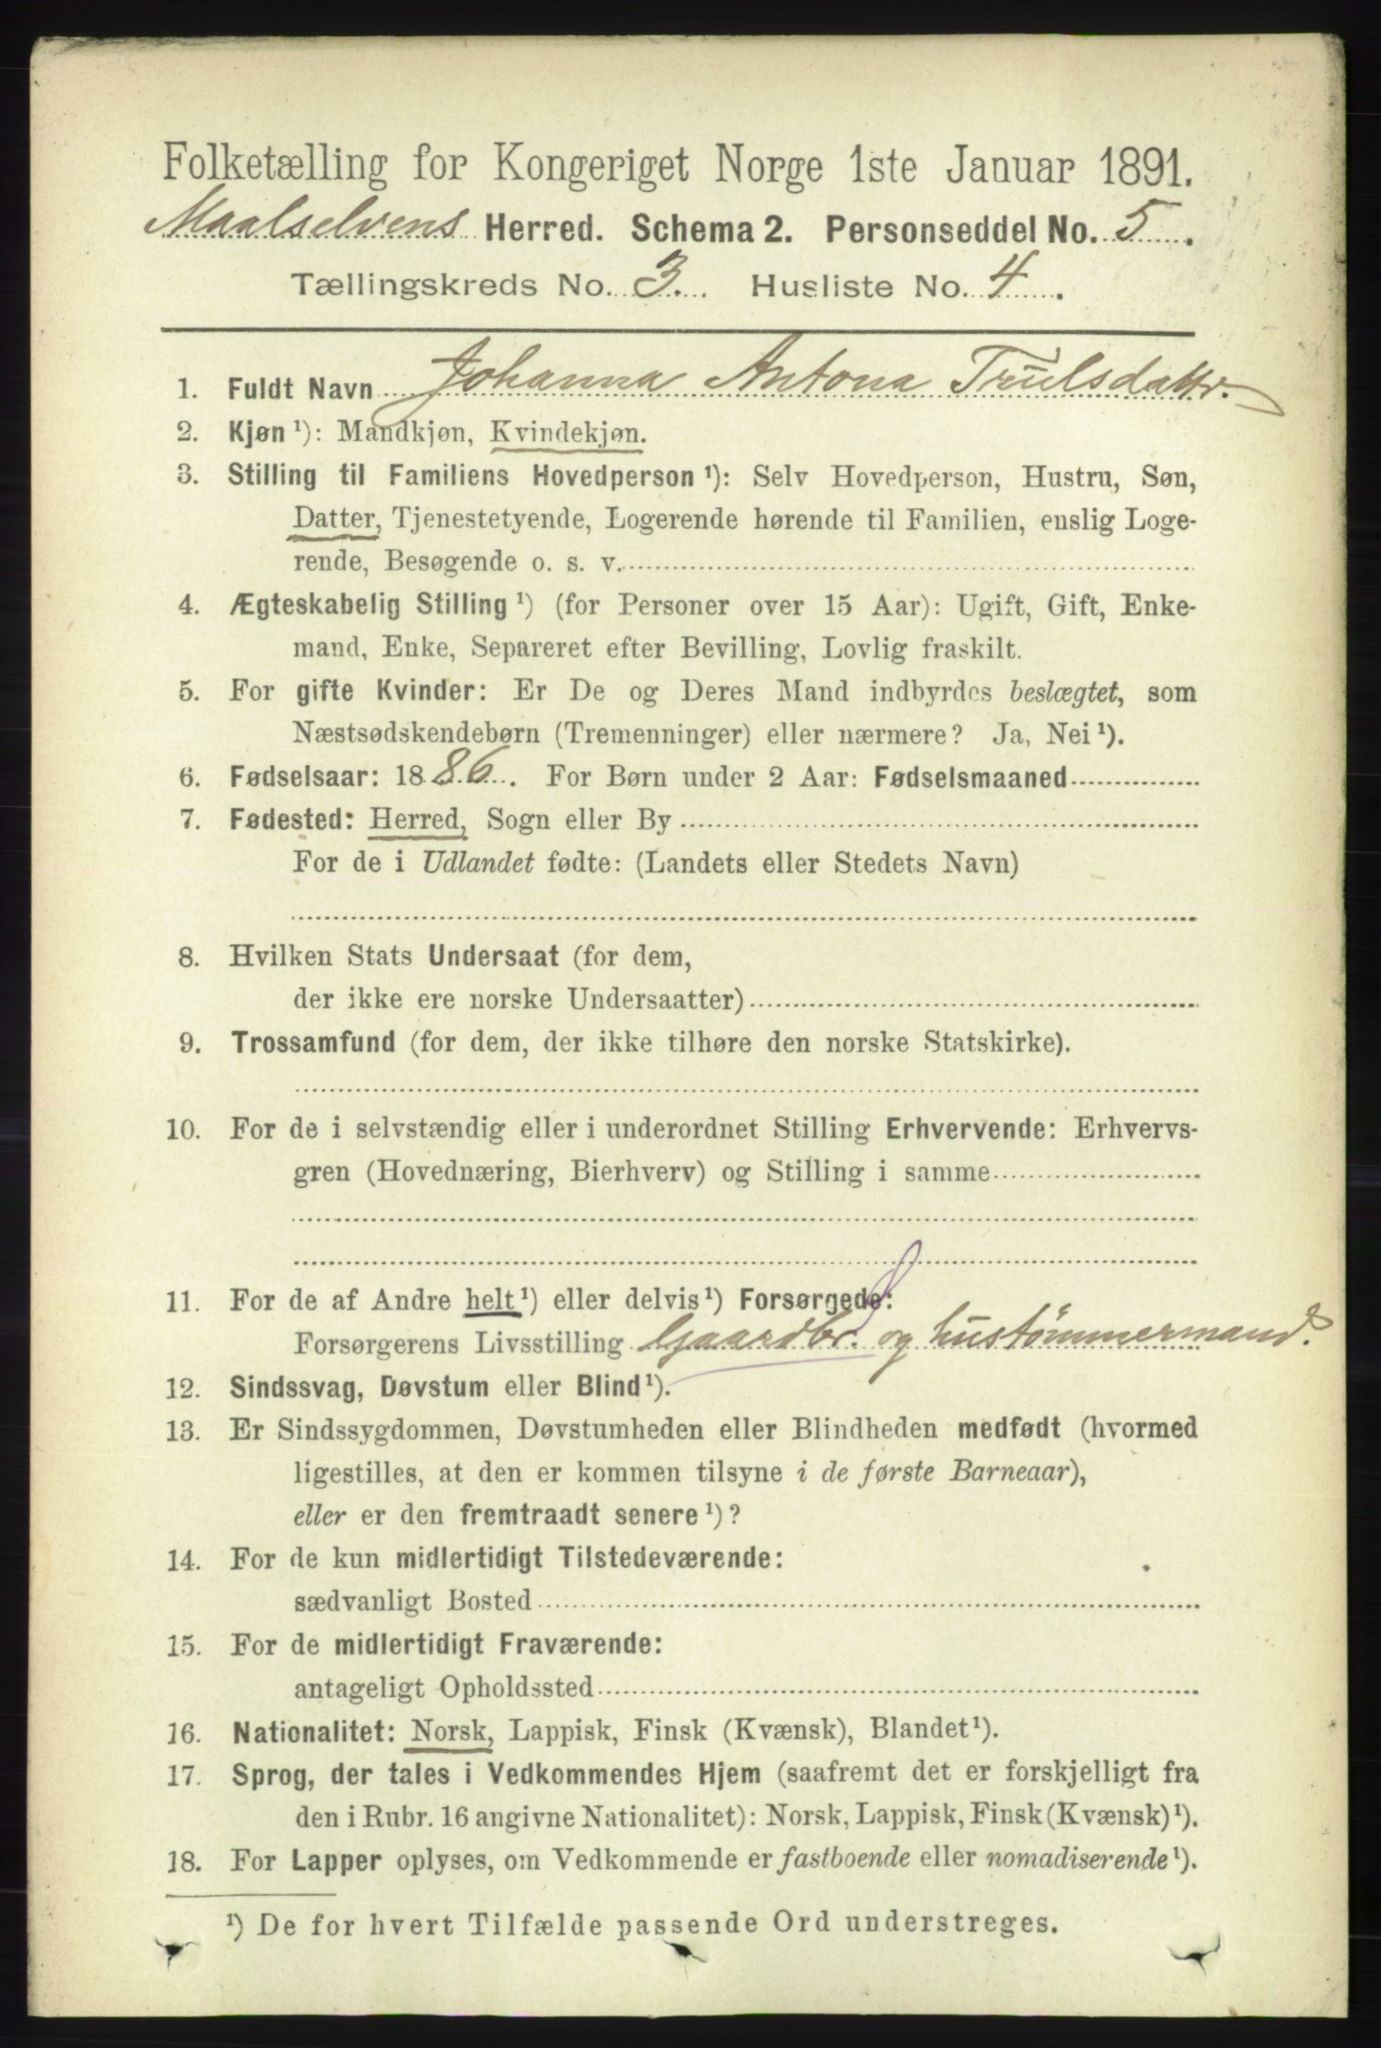 Folketælling for Kongeriget Norge 1ste Januar 1891.
Maalselvens Herred. Schema 2. Personseddel No. 5.
Tællingskreds No. 3. Husliste No. 4.
1. Fuldt Navn Johanna Antona Trulsdattr.
2. Kjøn ¹): Mandkjøn, Kvindekjøn.
3. Stilling til Familiens Hovedperson ¹): Selv Hovedperson, Hustru, Søn,
Datter, Tjenestetyende, Logerende hørende til Familien, enslig Loge-
rende, Besøgende o. s. v.
4. Ægteskabelig Stilling ¹) (for Personer over 15 Aar): Ugift, Gift, Enke-
mand, Enke, Separeret efter Bevilling, Lovlig fraskilt.
5. For gifte Kvinder: Er De og Deres Mand indbyrdes beslægtet, som
Næstsødskendebørn (Tremenninger) eller nærmere? Ja, Nei ¹).
6. Fødselsaar: 1886. For Børn under 2 Aar: Fødselsmaaned
7. Fødested: Herred, Sogn eller By
For de i Udlandet fødte: (Landets eller Stedets Navn)
8. Hvilken Stats Undersaat (for dem,
der ikke ere norske Undersaatter)
9. Trossamfund (for dem, der ikke tilhøre den norske Statskirke).
10. For de i selvstændig eller i underordnet Stilling Erhvervende: Erhvervs-
gren (Hovednæring, Bierhverv) og Stilling i samme
11. For de af Andre helt ¹) eller delvis ¹) Forsørgede:
Forsørgerens Livsstilling Gaardbr. og hustømmermand.
12. Sindssvag, Døvstum eller Blind ¹).
13. Er Sindssygdommen, Døvstumheden eller Blindheden medfødt (hvormed
ligestilles, at den er kommen tilsyne i de første Barneaar),
eller er den fremtraadt senere ¹)?
14. For de kun midlertidigt Tilstedeværende:
sædvanligt Bosted
15. For de midlertidigt Fraværende:
antageligt Opholdssted
16. Nationalitet: Norsk, Lappisk, Finsk (Kvænsk), Blandet ¹).
17. Sprog, der tales i Vedkommendes Hjem (saafremt det er forskjelligt fra
den i Rubr. 16 angivne Nationalitet): Norsk, Lappisk, Finsk (Kvænsk) ¹).
18. For Lapper oplyses, om Vedkommende er fastboende eller nomadiserende ¹).
¹) De for hvert Tilfælde passende Ord understreges.